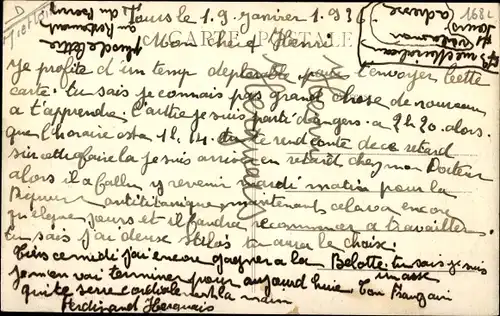 Tours le 1.9 Janvier 1.936
CARTE POSTALE
Mon cher Henri
Je profite d'un temp deplorable pour t'envoyer cette
carte. tu sais je connais pas grand chose de nouveau
a t'apprendre. l'autre je suis parti d'angers a 2h20. alors
que l'horaire est a 1h.14. rend conte de ce retard
sur cette faire la je suis arrivé en retard chez mon Docteur
alors il a fallu y revenir mardi matin pour la
Piqure antititanique maintenant cela va encore
quelque jours et il faudra recommencer a travailler.
tu sais j'ai deux stylos tu auras le choix.
Tiens ce midi j'ai encore gagner a la Belotte. tu sais je suis
un ask
je m'en vai terminer pour aujourd huie Ton Frangain
qui te serre cordialement la main
Ferdinand
plus de lettre
au Restaurant
du
adresse
Tours